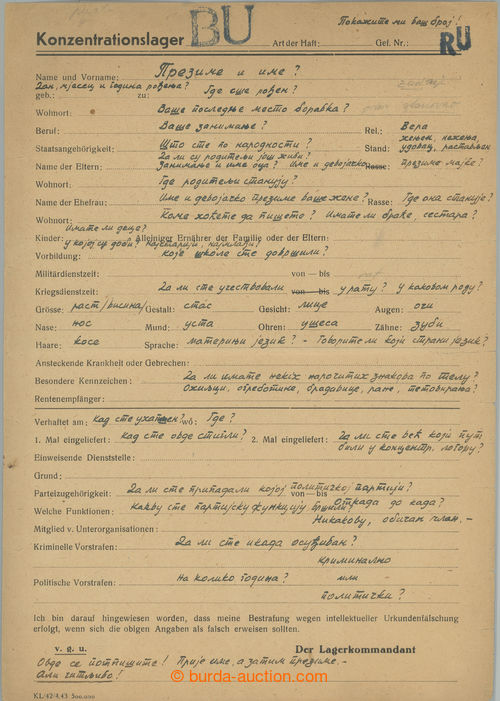 Покажите ми ваш број!
Konzentrationslager BU Art der Haft: Gef. Nr.: RU
Name und Vorname: Презиме и име?
Дан, мјесец и година рођења? Где сте рођен?
geb.: zu:
Wohnort: Ваше последње место боравка?
Beruf: Ваше занимање? Rel.: Вера
Staatsangehörigkeit: Што сте по народности? Stand: жењен, нежења, удовац, растављен
Да ли су родитељи још живи?
Name der Eltern: Занимање и име оца? Име и девојачко Rasse: презиме мајке?
Wohnort: Где родитељи станују?
Name der Ehefrau: Име и девојачко презиме ваше жене? Rasse: Где она станује?
Wohnort: Коме хоћете да пишете? Имате ли браће, сестара?
Имате ли деце?
Kinder: Alleiniger Ernährer der Familie oder der Eltern:
у којој су доби? најстарији, најмлађи?
Vorbildung: које школе сте довршили?
Militärdienstzeit: von — bis
Kriegsdienstzeit: Да ли сте учествовали von — bis у рату? у каковом роду?
Grösse: раст/висина/ Gestalt: стас Gesicht: лице Augen: очи
Nase: нос Mund: уста Ohren: ушеса Zähne: зуби
Haare: косе Sprache: материњи језик? - Говорите ли који страни језик?
Ansteckende Krankheit oder Gebrechen:
Да ли имате неких нарочитих знакова по телу?
Besondere Kennzeichen: Ожиљци, брадавице, ране, тетовирања?
Rentenempfänger:
Verhaftet am: кад сте ухапшен? wo: Где?
1. Mal eingeliefert: кад сте овде стигли? 2. Mal eingeliefert: Да ли сте већ који пут били у концентр. логору?
Einweisende Dienststelle:
Grund:
Parteizugehörigkeit: Да ли сте припадали којој политичкој партији? von — bis Откада до када?
Welche Funktionen: какву сте партијску функцију вршили?
Mitglied v. Unterorganisationen: Никакову, обичан члан. -
Kriminelle Vorstrafen: Да ли сте икада осуђиван?
криминално
Politische Vorstrafen: на колико година? или
политички?
Ich bin darauf hingewiesen worden, dass meine Bestrafung wegen intellektueller Urkundenfälschung
erfolgt, wenn sich die obigen Angaben als falsch erweisen sollten.
v. g. u. Der Lagerkommandant
Овде се потпишите! Прије име, а затим презиме. -
Али читљиво!
KL/42/4.43 500.000
© burda-auction.com